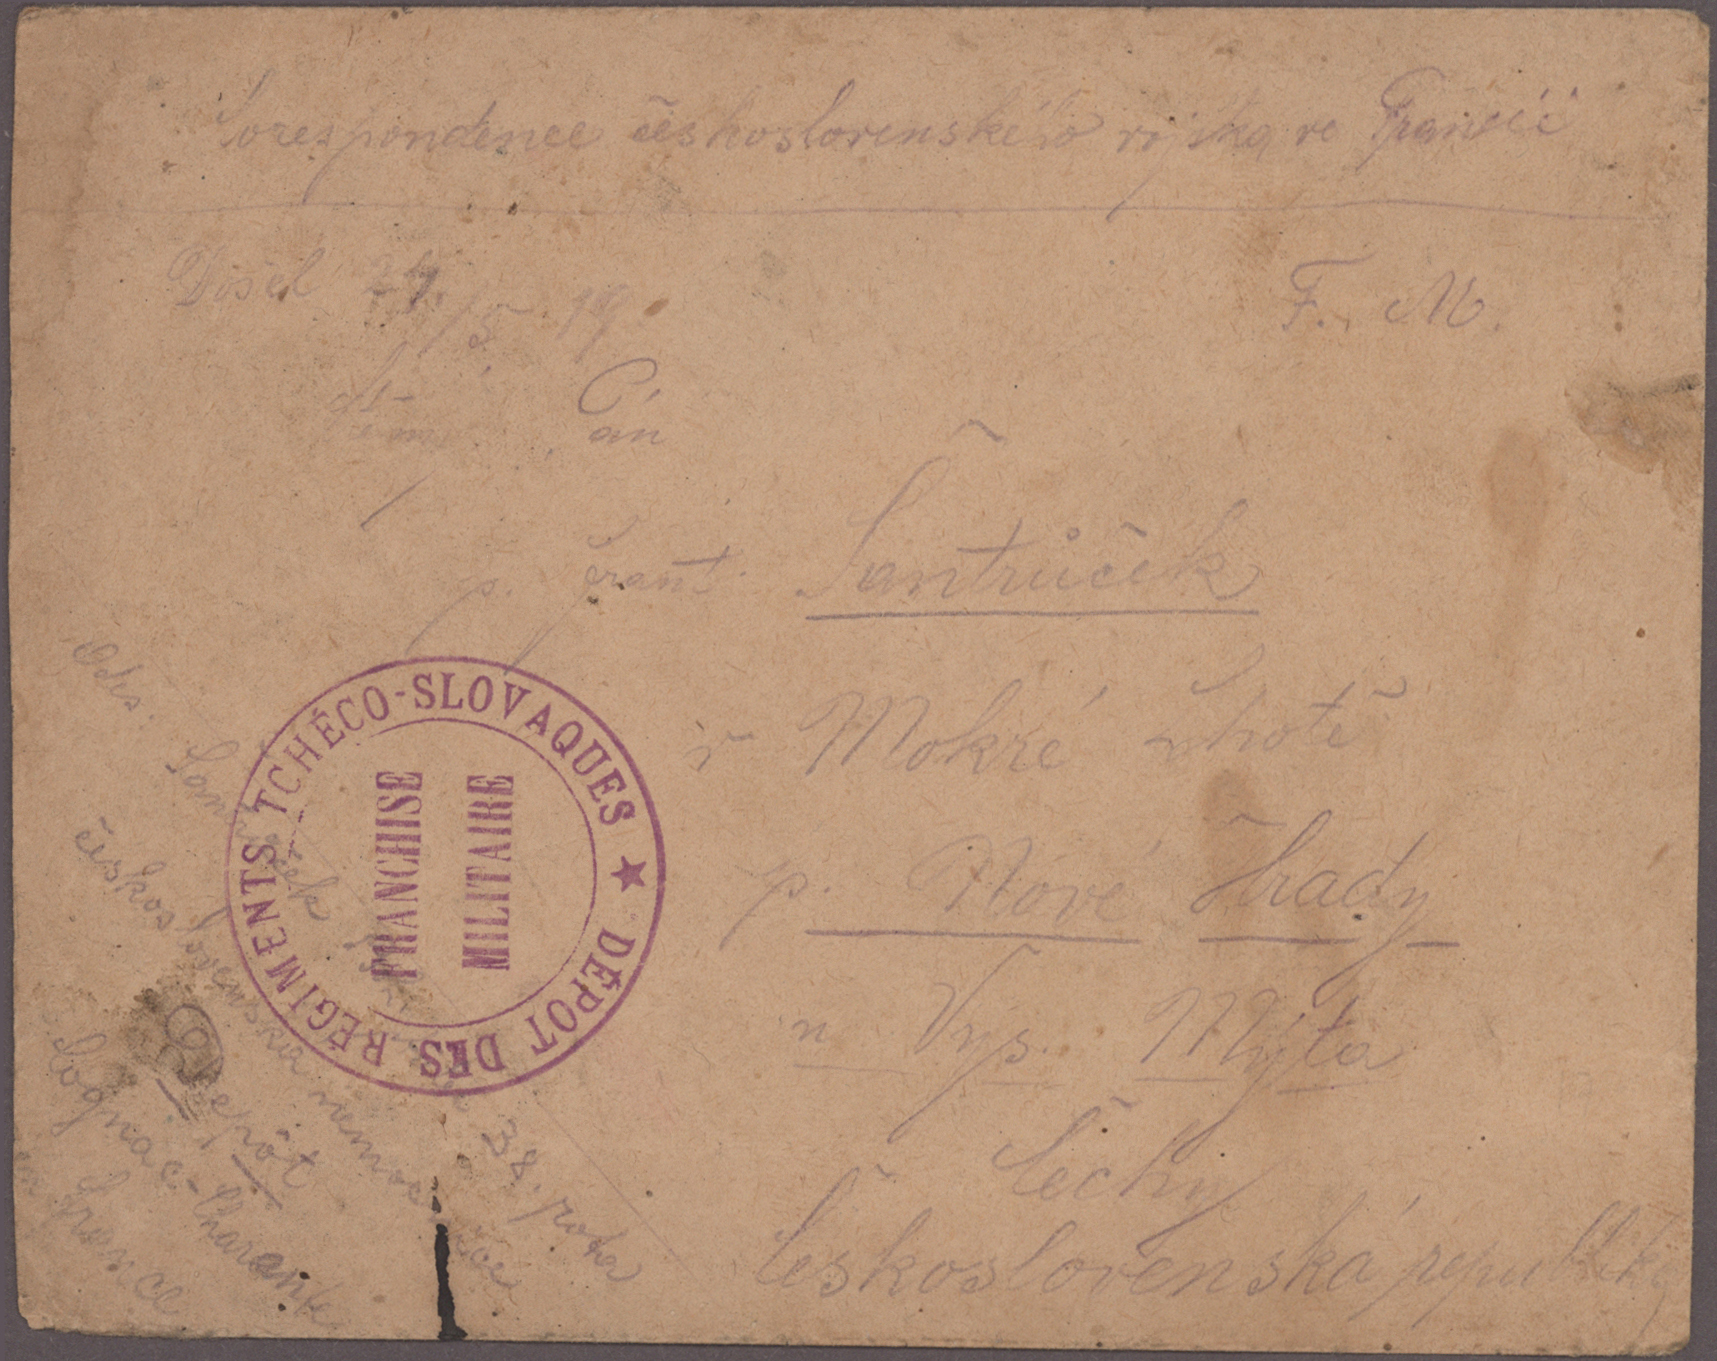 Corespondence československého vojína ve Francii
Došel 27. /5 19
F. M.
Pán
p. Frant. Šantrůček
v Mokré Lhotě
p. Nové Hrady
u Vys. Mýta
Čechy
Československá republika
DÉPOT DES RÉGIMENTS TCHÉCO-SLOVAQUES ★
FRANCHISE
MILITAIRE
Odes.
Šantrůček
38. rota
československá nemocnice
Depôt
Cognac-Charente
France